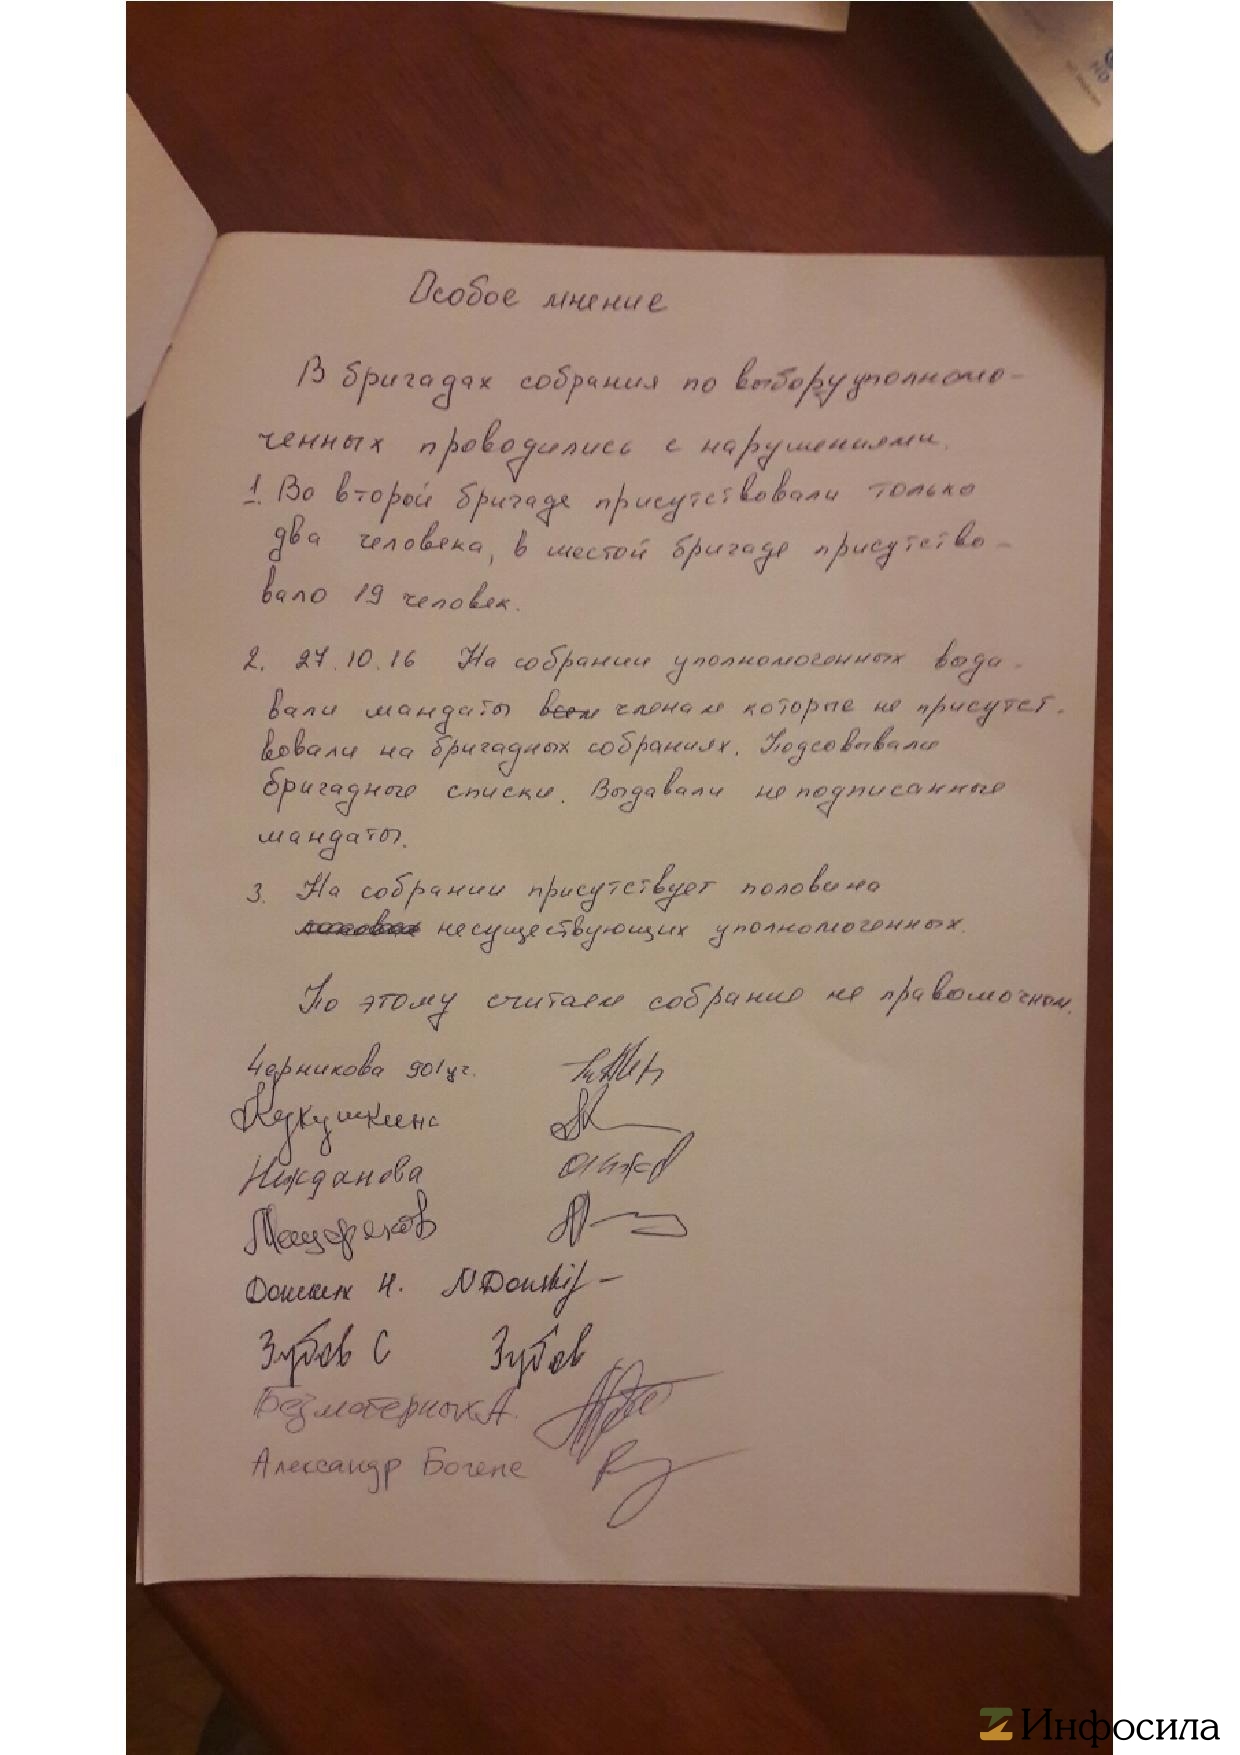 Особое мнение
В бригадах собрания по выбору уполномо-
ченных проводились с нарушениями.
1. Во второй бригаде присутствовали только
два человека, в шестой бригаде присутство-
вало 19 человек.
2. 27.10.16 На собрании уполномоченных выда-
вали мандаты всем членам которые не присутст-
вовали на бригадных собраниях. Подсовывали
бригадные списки. Выдавали неподписанные
мандаты.
3. На собрании присутствует половина
несуществующих уполномоченных.
По этому считаем собрание не правомочном.
Черникова 901уч.
Кукушкина
Нежданова
Донских Н. NDonskij
Зубов С Зубов
Безматерных А.
Александр Богепе
Инфосила